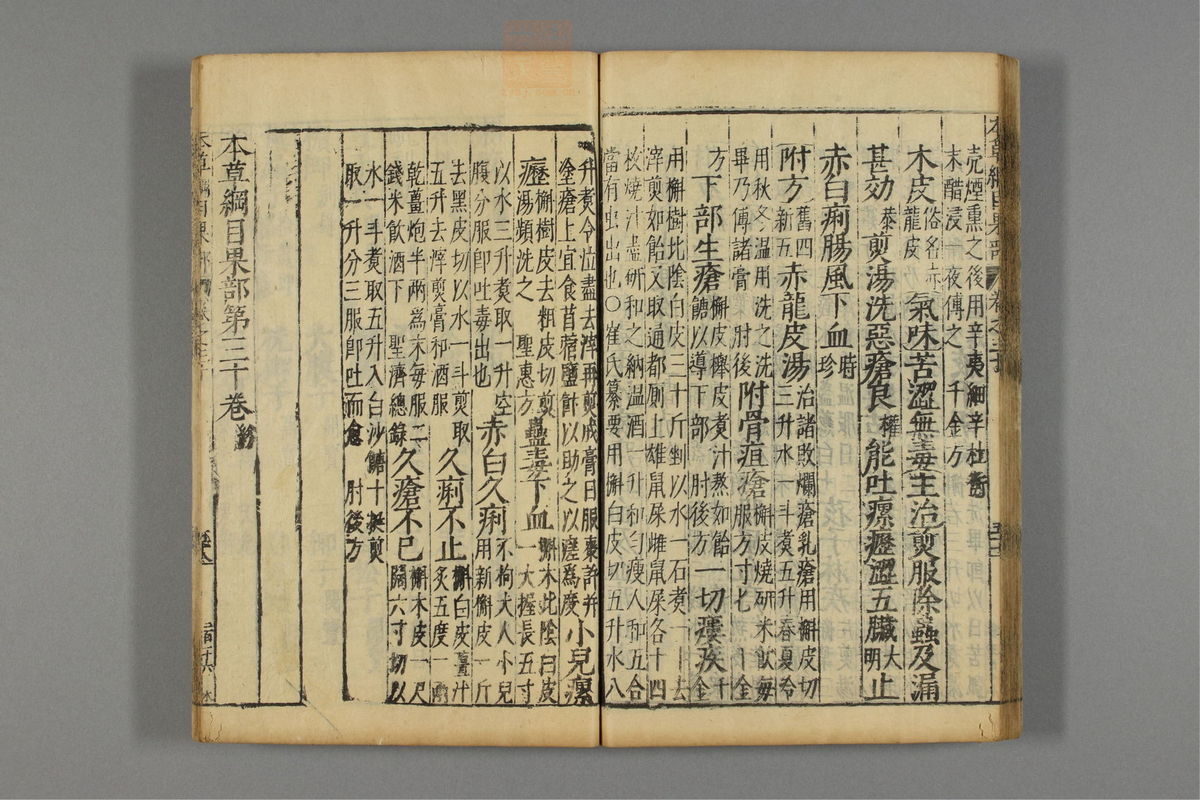 本草綱目果部 卷之三十
売煙熏之後用辛夷細辛杜衡
末醋浸一夜傅之 千金方
木皮 俗名赤龍皮 氣味苦澀無毒主治煎服除蟲及漏
甚効 恭 煎湯洗惡瘡良 權 能吐瘰癧澀五臟 大明 止
赤白痢腸風下血 時珍
附方 舊四新五 赤龍皮湯 治諸敗爛瘡乳瘡用槲皮切三升水一斗煮五升春夏冷
用秋冬温用洗之洗畢乃傅諸膏 肘後方 附骨疽瘡 槲皮燒研米飲每服方寸匕 千金方
下部生瘡 槲皮櫸皮煮汁熬如飴糖以導下部 肘後方 一切瘻疾 千金
用槲樹北陰白皮三十斤剉以水一石煮一斗去
滓煎如飴又取通都厠上雄鼠屎雌鼠屎各十四
枚燒汁盡研和之納温酒一升和勻瘦人和五合
當有虫出也〇崔氏纂要用槲白皮切五升水八
升煮令泣盡去滓再煎成膏日服棗許并
塗瘡上宜食苜蓿鹽飰以助之以瘥爲度 小兒瘰
癧 槲樹皮去粗皮切煎湯頻洗之 聖惠方 蠱毒下血 槲木北陰白皮一大握長五寸
以水三升煮取一升空腹分服即吐毒出也 赤白久痢 不拘大人小兒用新槲皮一斤
去黑皮切以水一斗煎取五升去滓煎膏和酒服 久痢不止 槲白皮薑汁炙五度一兩
乾薑炮半兩爲末每服二錢米飲酒下 聖濟總錄 久瘡不已 槲木皮一尺闊六寸切以
水一斗煮取五升入白沙糖十挺煎取一升分三服即吐而愈 肘後方
本草綱目果部第三十卷終